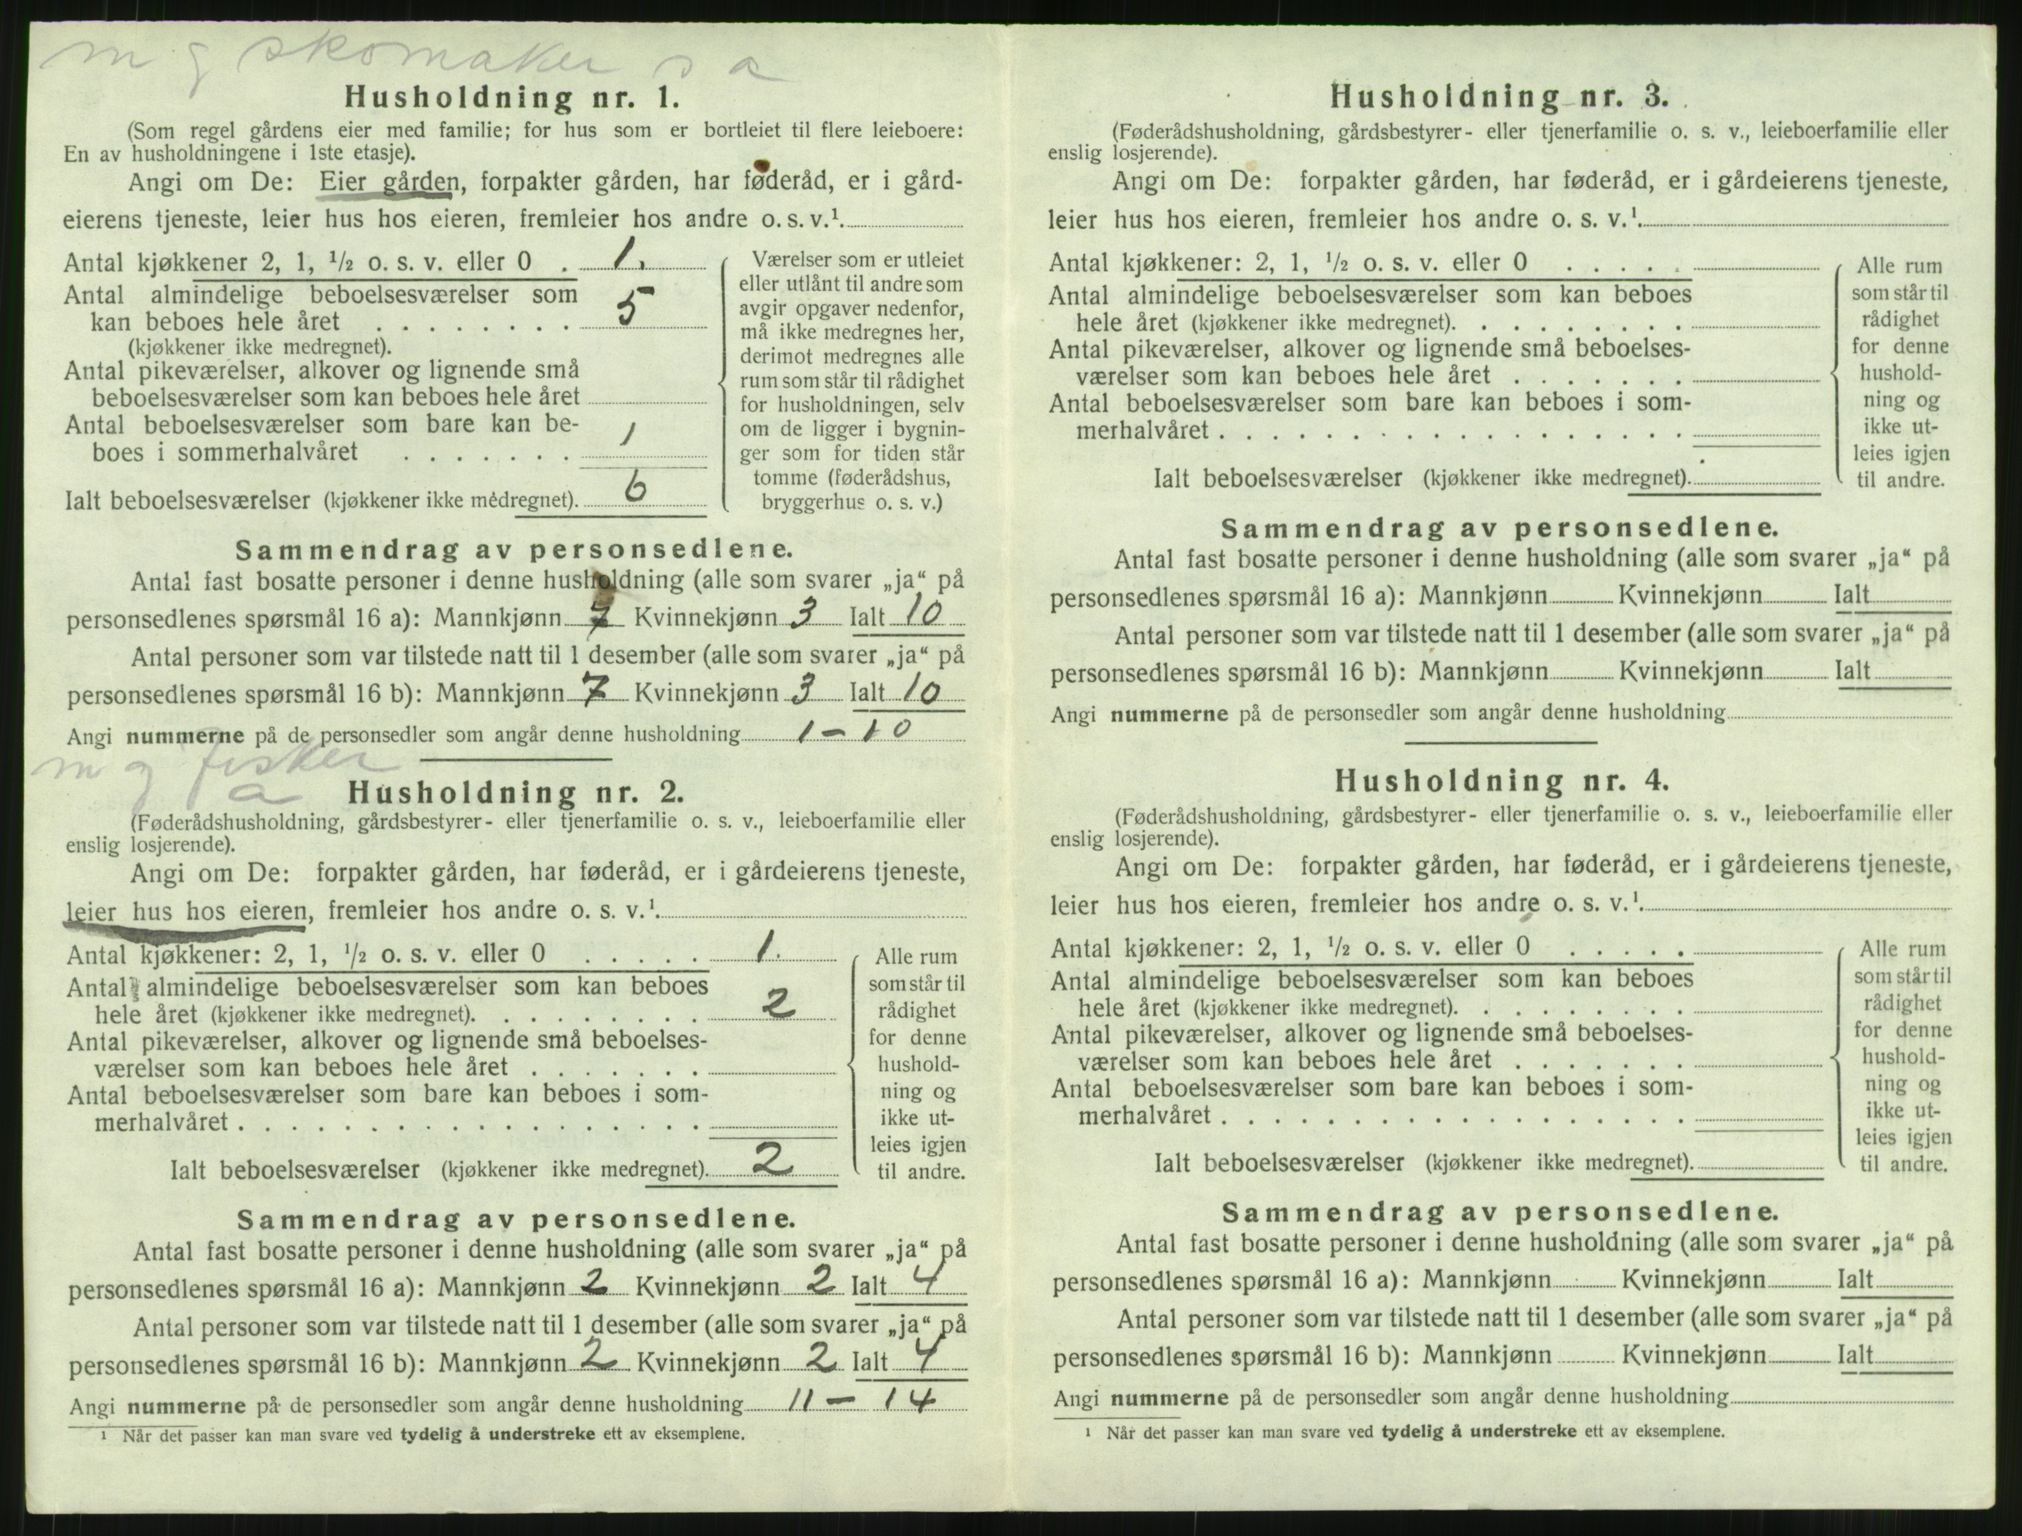 m g skomaker s a
Husholdning nr. 1.
(Som regel gårdens eier med familie; for hus som er bortleiet til flere leieboere:
En av husholdningene i 1ste etasje).
Angi om De: Eier gården, forpakter gården, har føderåd, er i gård-
eierens tjeneste, leier hus hos eieren, fremleier hos andre o. s. v.¹
Antal kjøkkener 2, 1, ½ o. s. v. eller 0 . 1.
Antal almindelige beboelsesværelser som
kan beboes hele året . . . . . . . . 5
(kjøkkener ikke medregnet).
Antal pikeværelser, alkover og lignende små
beboelsesværelser som kan beboes hele året
Antal beboelsesværelser som bare kan be-
boes i sommerhalvåret . . . . . . . 1
Ialt beboelsesværelser (kjøkkener ikke medregnet). 6
Værelser som er utleiet
eller utlånt til andre som
avgir opgaver nedenfor,
må ikke medregnes her,
derimot medregnes alle
rum som står til rådighet
for husholdningen, selv
om de ligger i bygnin-
ger som for tiden står
tomme (føderådshus,
bryggerhus o. s. v.)
Sammendrag av personsedlene.
Antal fast bosatte personer i denne husholdning (alle som svarer „ja“ på
personsedlenes spørsmål 16 a): Mannkjønn 7 Kvinnekjønn 3 Ialt 10
Antal personer som var tilstede natt til 1 desember (alle som svarer „ja“ på
personsedlenes spørsmål 16 b): Mannkjønn 7 Kvinnekjønn 3 Ialt 10
Angi nummerne på de personsedler som angår denne husholdning 1 - 10
m g fisker
a
Husholdning nr. 2.
(Føderådshusholdning, gårdsbestyrer- eller tjenerfamilie o. s. v., leieboerfamilie eller
enslig losjerende).
Angi om De: forpakter gården, har føderåd, er i gårdeierens tjeneste,
leier hus hos eieren, fremleier hos andre o. s. v.¹
Antal kjøkkener: 2, 1, ½ o. s. v. eller 0 . . . . . 1.
Antal almindelige beboelsesværelser som kan beboes
hele året (kjøkkener ikke medregnet). . . . . . . . . 2
Antal pikeværelser, alkover og lignende små beboelses-
værelser som kan beboes hele året . . . . . . .
Antal beboelsesværelser som bare kan beboes i som-
merhalvåret . . . . . . . . . . . . . . . . . .
Ialt beboelsesværelser (kjøkkener ikke medregnet). 2
Alle rum
som står til
rådighet
for denne
hushold-
ning og
ikke ut-
leies igjen
til andre.
Sammendrag av personsedlene.
Antal fast bosatte personer i denne husholdning (alle som svarer „ja“ på
personsedlenes spørsmål 16 a): Mannkjønn 2 Kvinnekjønn 2 Ialt 4
Antal personer som var tilstede natt til 1 desember (alle som svarer „ja“ på
personsedlenes spørsmål 16 b): Mannkjønn 2 Kvinnekjønn 2 Ialt 4
Angi nummerne på de personsedler som angår denne husholdning 11 - 14
¹ Når det passer kan man svare ved tydelig å understreke ett av eksemplene.
Husholdning nr. 3.
(Føderådshusholdning, gårdsbestyrer- eller tjenerfamilie o. s. v., leieboerfamilie eller
enslig losjerende).
Angi om De: forpakter gården, har føderåd, er i gårdeierens tjeneste,
leier hus hos eieren, fremleier hos andre o. s. v.¹
Antal kjøkkener: 2, 1, ½ o. s. v. eller 0 . . . . .
Antal almindelige beboelsesværelser som kan beboes
hele året (kjøkkener ikke medregnet). . . . . . . . .
Antal pikeværelser, alkover og lignende små beboelses-
værelser som kan beboes hele året . . . . . . .
Antal beboelsesværelser som bare kan beboes i som-
merhalvåret . . . . . . . . . . . . . . . . . .
Ialt beboelsesværelser (kjøkkener ikke medregnet).
Alle rum
som står til
rådighet
for denne
hushold-
ning og
ikke ut-
leies igjen
til andre.
Sammendrag av personsedlene.
Antal fast bosatte personer i denne husholdning (alle som svarer „ja“ på
personsedlenes spørsmål 16 a): Mannkjønn Kvinnekjønn Ialt
Antal personer som var tilstede natt til 1 desember (alle som svarer „ja“ på
personsedlenes spørsmål 16 b): Mannkjønn Kvinnekjønn Ialt
Angi nummerne på de personsedler som angår denne husholdning
Husholdning nr. 4.
(Føderådshusholdning, gårdsbestyrer- eller tjenerfamilie o. s. v., leieboerfamilie eller
enslig losjerende).
Angi om De: forpakter gården, har føderåd, er i gårdeierens tjeneste,
leier hus hos eieren, fremleier hos andre o. s. v.¹
Antal kjøkkener: 2, 1, ½ o. s. v. eller 0 . . . . .
Antal almindelige beboelsesværelser som kan beboes
hele året (kjøkkener ikke medregnet). . . . . . . . .
Antal pikeværelser, alkover og lignende små beboelses-
værelser som kan beboes hele året . . . . . . .
Antal beboelsesværelser som bare kan beboes i som-
merhalvåret . . . . . . . . . . . . . . . . . .
Ialt beboelsesværelser (kjøkkener ikke medregnet).
Alle rum
som står til
rådighet
for denne
hushold-
ning og
ikke ut-
leies igjen
til andre.
Sammendrag av personsedlene.
Antal fast bosatte personer i denne husholdning (alle som svarer „ja“ på
personsedlenes spørsmål 16 a): Mannkjønn Kvinnekjønn Ialt
Antal personer som var tilstede natt til 1 desember (alle som svarer „ja“ på
personsedlenes spørsmål 16 b): Mannkjønn Kvinnekjønn Ialt
Angi nummerne på de personsedler som angår denne husholdning
¹ Når det passer kan man svare ved tydelig å understreke ett av eksemplene.